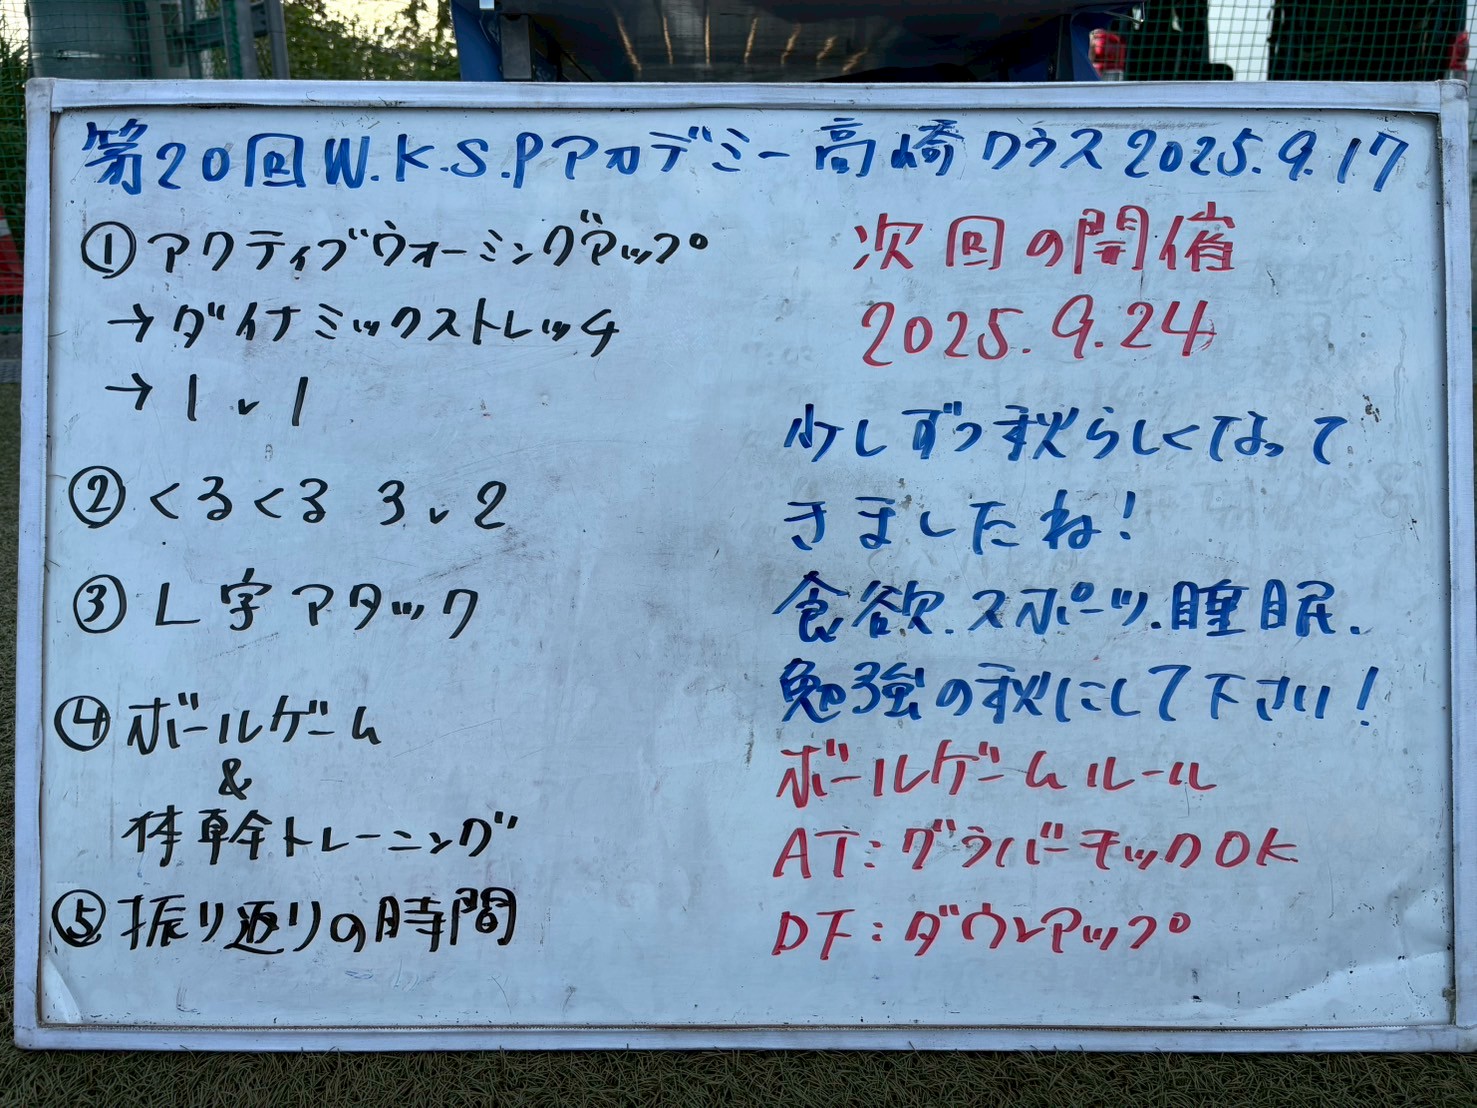 第20回W.K.S.Pアカデミー高崎クラス2025.9.17
①アクティブウォーミングアップ
→ダイナミックストレッチ
→1v1
②くるくる 3v2
③L字アタック
④ボールゲーム
&
体幹トレーニング
⑤振り返りの時間
次回の開催
2025.9.24
少しずつ秋らしくなって
きましたね!
食欲.スポーツ.睡眠.
勉強の秋にして下さい!
ボールゲームルール
AT:グラバーキックOK
DF:ダウンアップ